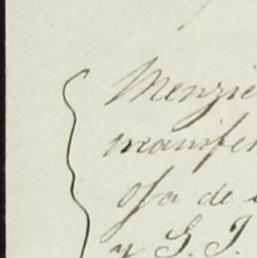 Menzie
manifes
Osa de
y S. J.